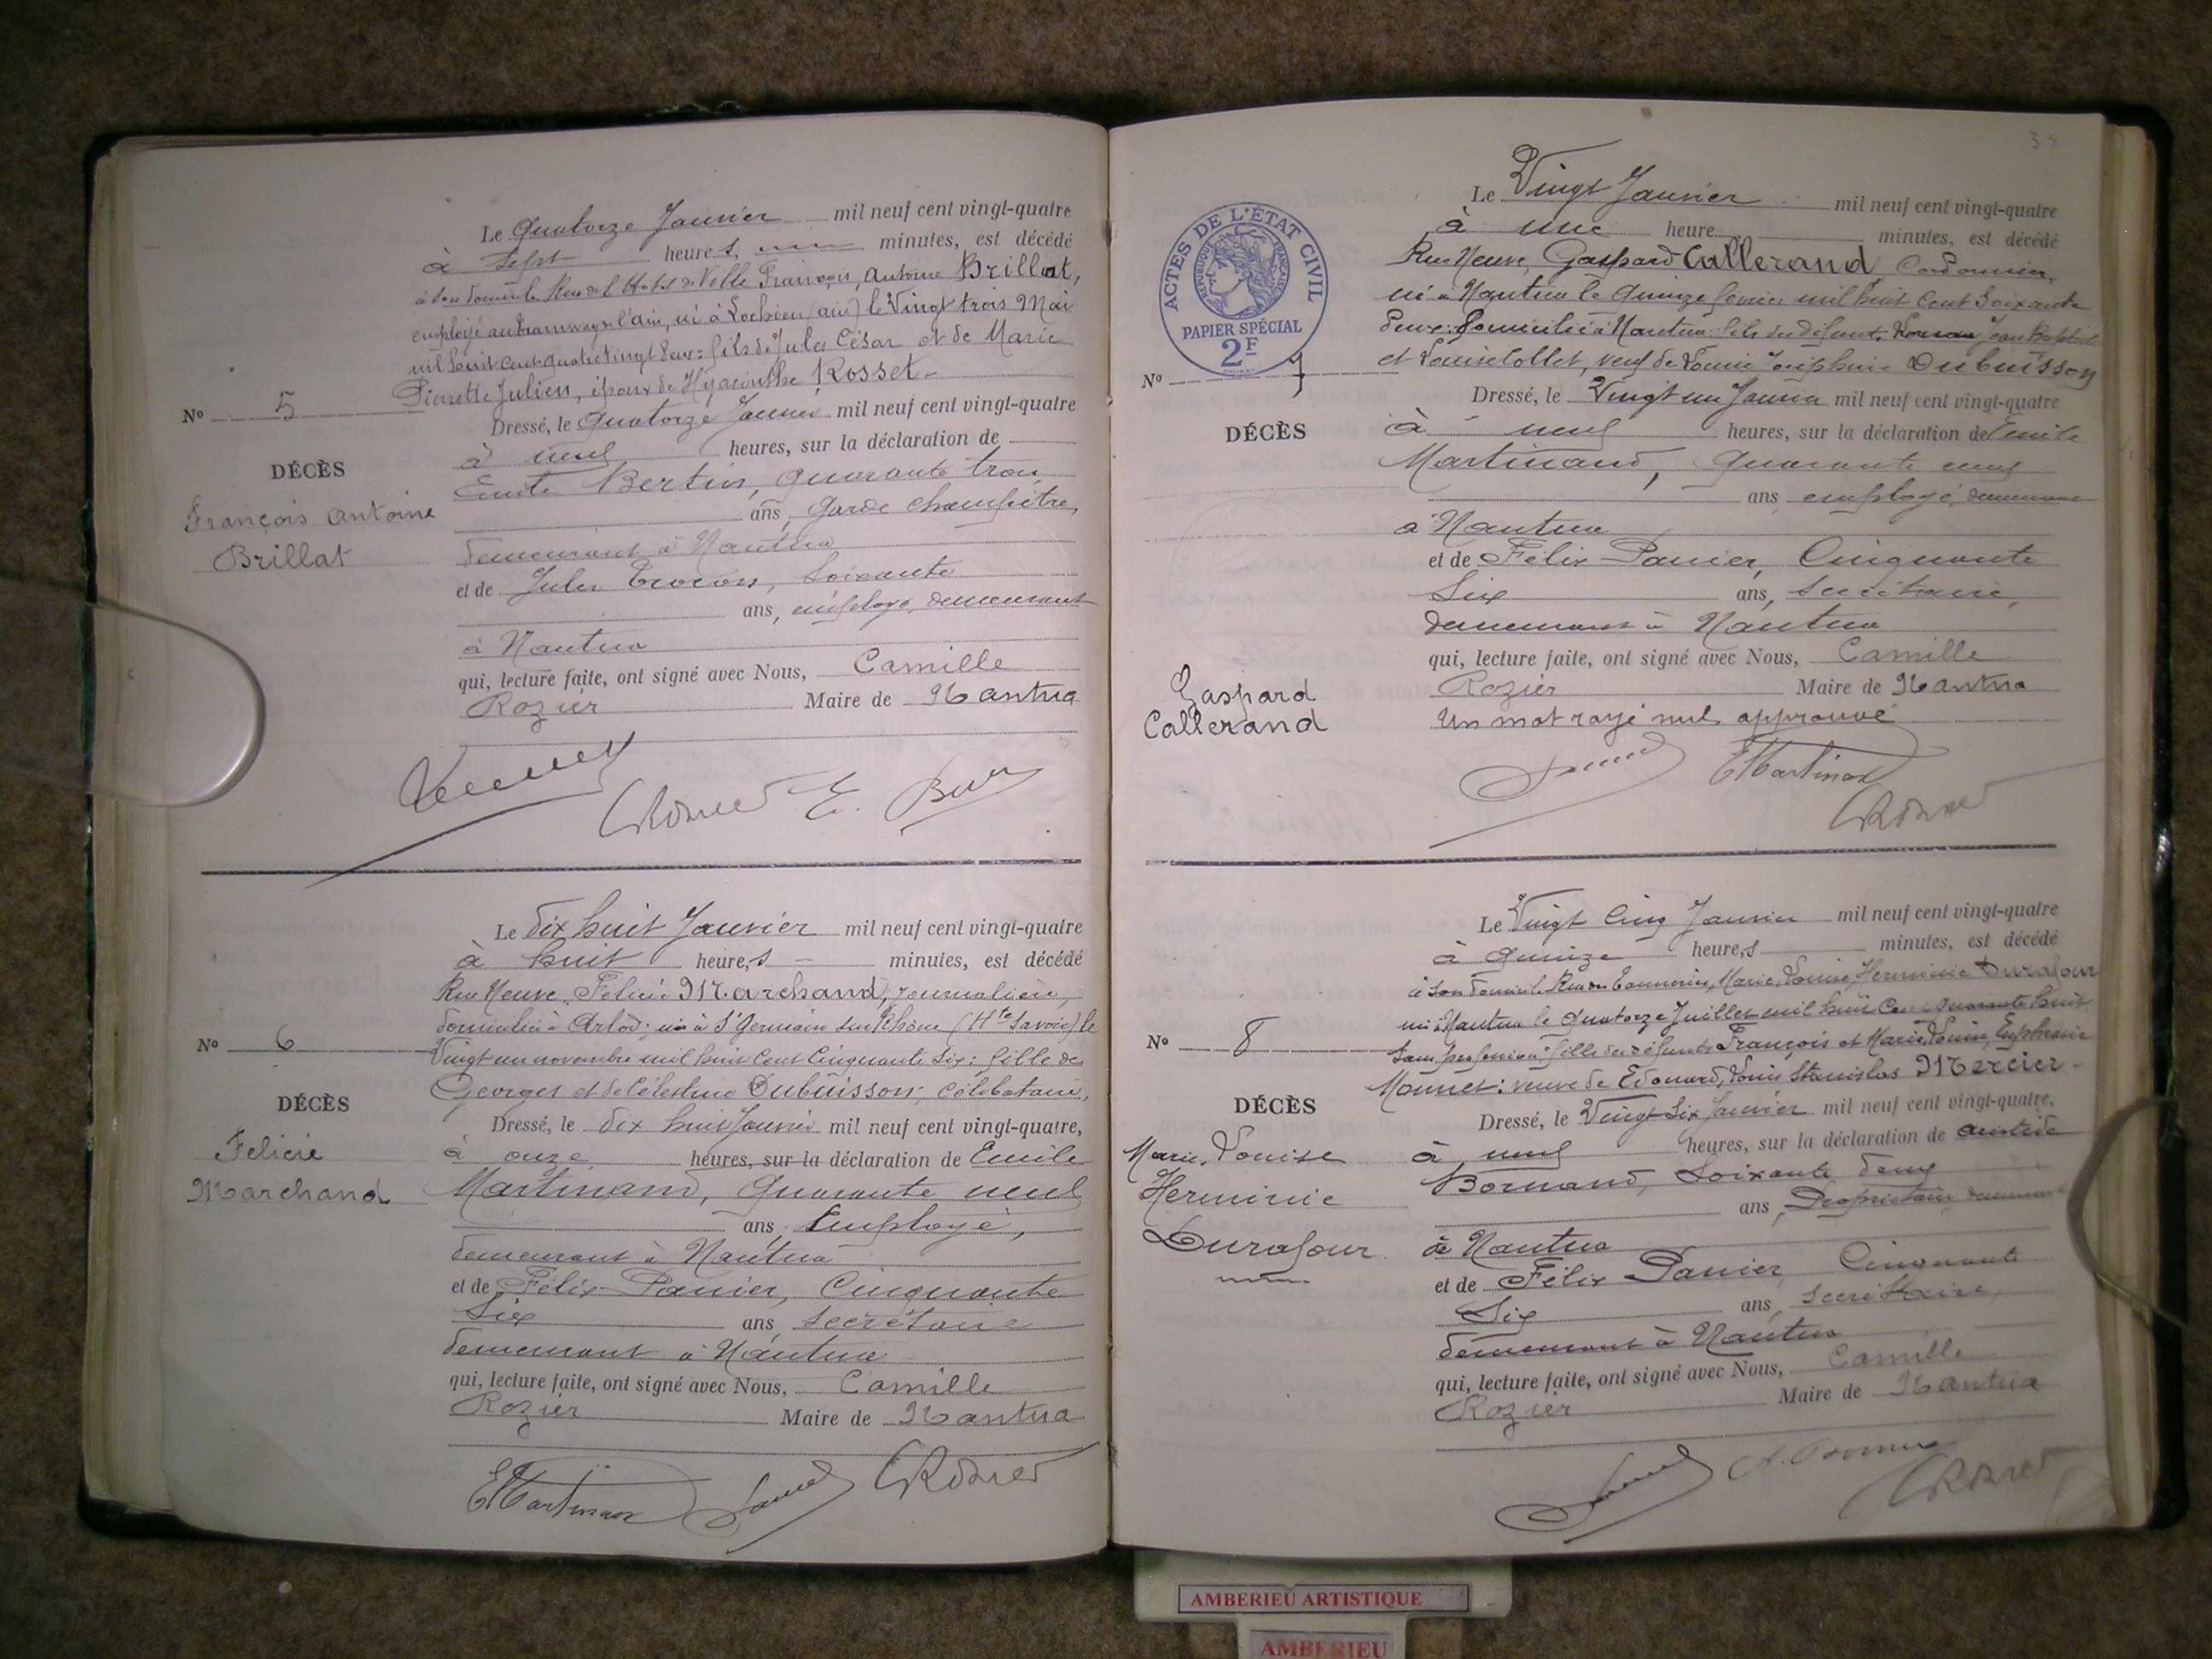 Le Quatorze Janvier mil neuf cent vingt-quatre
à Sept heures, minutes, est décédé
à son domicile Rue de l'Hotel de Ville François, Antoine Brillat,
employé au tramways de l'ain, né à (ain) le Vingt trois Mai
mil huit cent quatre vingt deux: fils de Jules César et de Marie
Pierrette Julien, époux de Hyacinthe Rosset
Nº 5
DÉCÈS
François Antoine
Brillat
Dressé, le Quatorze Janvier mil neuf cent vingt-quatre
à neuf heures, sur la déclaration de
Emile Bertin, quarante trois
ans, Garde champêtre,
demeurant à Nantua
et de Jules Soixante
ans, employé, demeurant
à Nantua
qui, lecture faite, ont signé avec Nous, Camille
Rozier Maire de Nantua
Le dix huit Janvier mil neuf cent vingt-quatre
à huit heures minutes, est décédé
Rue Neuve, Félicie Marchand, Journalière,
domiciliée à Arlod; née à St Germain sur Rhône (Hte Savoie) le
Vingt un novembre mil huit cent cinquante six: fille de
Georges et de Célestine Dubuisson; célibataire,
Nº 6
DÉCÈS
Felicie
Marchand
Dressé, le dix huit Janvier mil neuf cent vingt-quatre,
à onze heures, sur la déclaration de Emile
Martinand, Quarante neuf
ans, Employé,
demeurant à Nantua
et de Félix Panier, Cinquante
Six ans, secrétaire
demeurant à Nantua
qui, lecture faite, ont signé avec Nous, Camille
Rozier Maire de Nantua
ACTES DE L'ÉTAT CIVIL
RÉPUBLIQUE FRANÇAISE
PAPIER SPÉCIAL
2F
Le Vingt Janvier mil neuf cent vingt-quatre
à une heure minutes, est décédé
Rue Neuve, Gaspard Callerand, Cordonnier,
né à Nantua le quinze février mil huit cent soixante
deux: domicilié à Nantua: fils des défunts Jean Baptiste
et Louise Collet, veuf de Louise Joséphine Dubuisson
Nº 7
DÉCÈS
Gaspard
Callerand
Dressé, le Vingt un Janvier mil neuf cent vingt-quatre
à neuf heures, sur la déclaration de Emile
Martinand, Quarante neuf
ans employé, demeurant
à Nantua
et de Félix Panier, Cinquante
Six ans, secrétaire,
demeurant à Nantua
qui, lecture faite, ont signé avec Nous, Camille
Rozier Maire de Nantua
Un mot rayé nul approuvé
EMartinand
Le Vingt Cinq Janvier mil neuf cent vingt-quatre
à quinze heures minutes, est décédé
à son domicile Rue des Tanneries, Marie, Louise, Herminie Durafour
née à Nantua le quatorze Juillet mil huit cent quarante huit
sans profession: fille des défunts François et Marie, Louise, Euphrasie
Monnet: veuve de Edouard, Louis Stanislas Mercier
Nº 8
DÉCÈS
Marie, Louise
Herminie
Durafour
Dressé, le Vingt Six Janvier mil neuf cent vingt-quatre,
à neuf heures, sur la déclaration de Aristide
Bornand, Soixante deux
ans, Propriétaire, demeurant
à Nantua
et de Félix Panier, Cinquante
Six ans, secrétaire,
demeurant à Nantua
qui, lecture faite, ont signé avec Nous, Camille
Rozier Maire de Nantua
AMBERIEU ARTISTIQUE
AMBERIEU